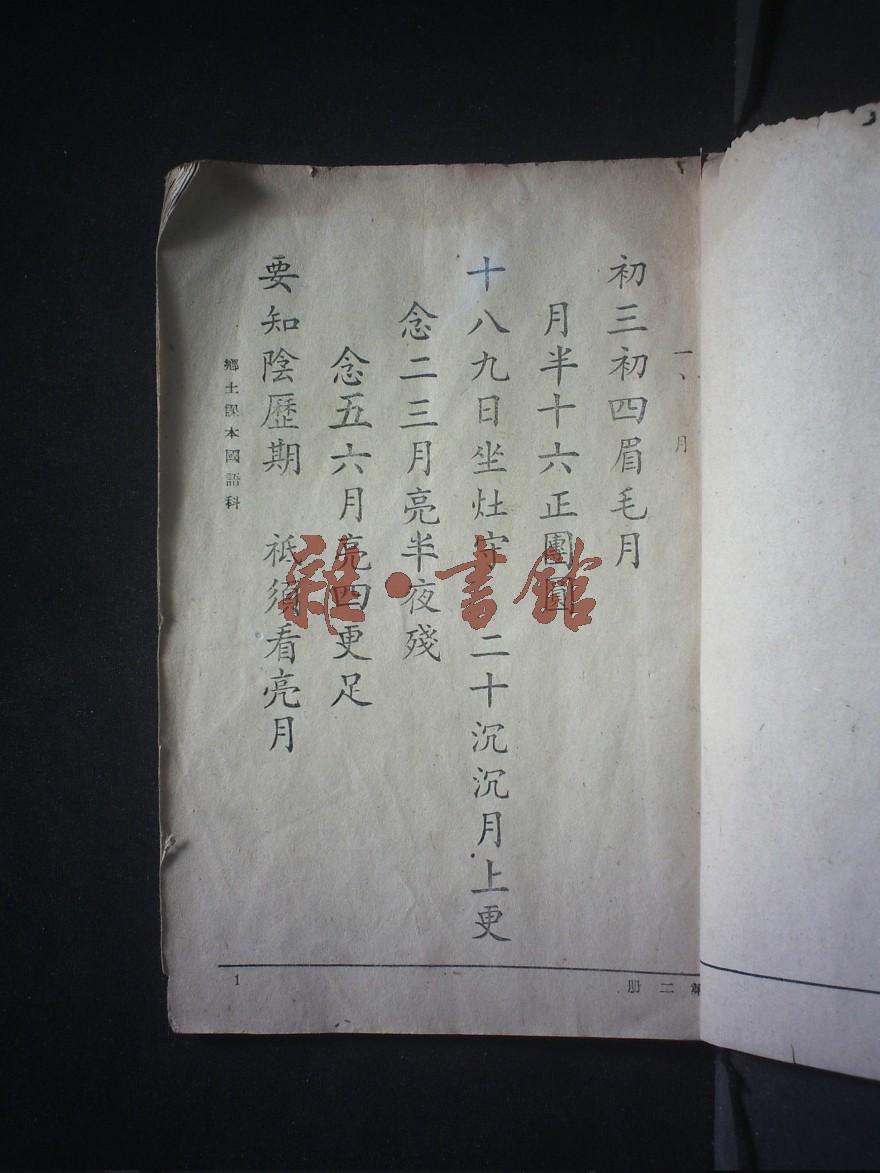 一、月
初三初四眉毛月
月半十六正團圓
十八九日坐灶守　二十沉沉月上更
念二三月亮半夜殘
念五六月亮四更足
要知陰歷期　祇須看亮月
鄉土課本國語科
第二册
1
雜·書館